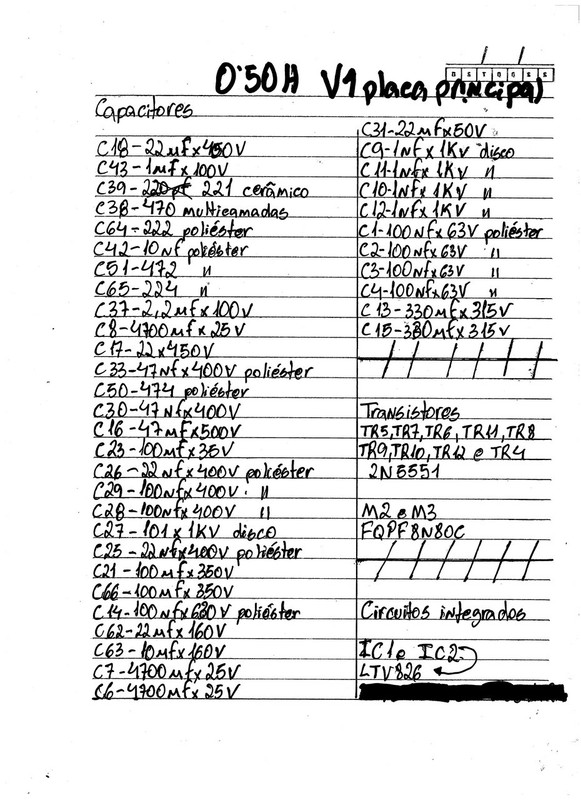 0'50H V1 placa principal
D S T Q Q S S
Capacitores
C18-22µf x 450V
C43-1µf x 100V
C39- 221 cerâmico
C38-470 multicamadas
C64-222 poliéster
C42-10Nf poliéster
C51-472 "
C65-224 "
C37-2,2µf x 100V
C8-4700µf x 25V
C17-22 x 450V
C33-47Nf x 400V poliéster
C50-474 poliéster
C30-47Nf x 400V
C16-47µf x 500V
C23-100µf x 35V
C26-22Nf x 400V poliéster
C29-100Nf x 400V. "
C28-100Nf x 400V "
C27-101 x 1KV disco
C25-22Nf x 400V poliéster
C21-100µf x 350V
C66-100µf x 350V
C14-100Nf x 630V poliéster
C62-22µf x 160V
C63-10µf x 160V
C7-4700µf x 25V
C6-4700µf x 25V
C31-22µf x 50V
C9-1Nf x 1KV disco
C11-1Nf x 1KV "
C10-1Nf x 1KV "
C12-1Nf x 1KV "
C1-100Nf x 63V poliéster
C2-100Nf x 63V "
C3-100Nf x 63V "
C4-100Nf x 63V "
C13-330µf x 315V
C15-330µf x 315V
Transistores
TR5,TR7,TR6,TR11,TR8
TR9,TR10,TR12 e TR4
2N5551
M2 e M3
FQPF8N80C
Circuitos integrados
IC1 e IC2
LTV826